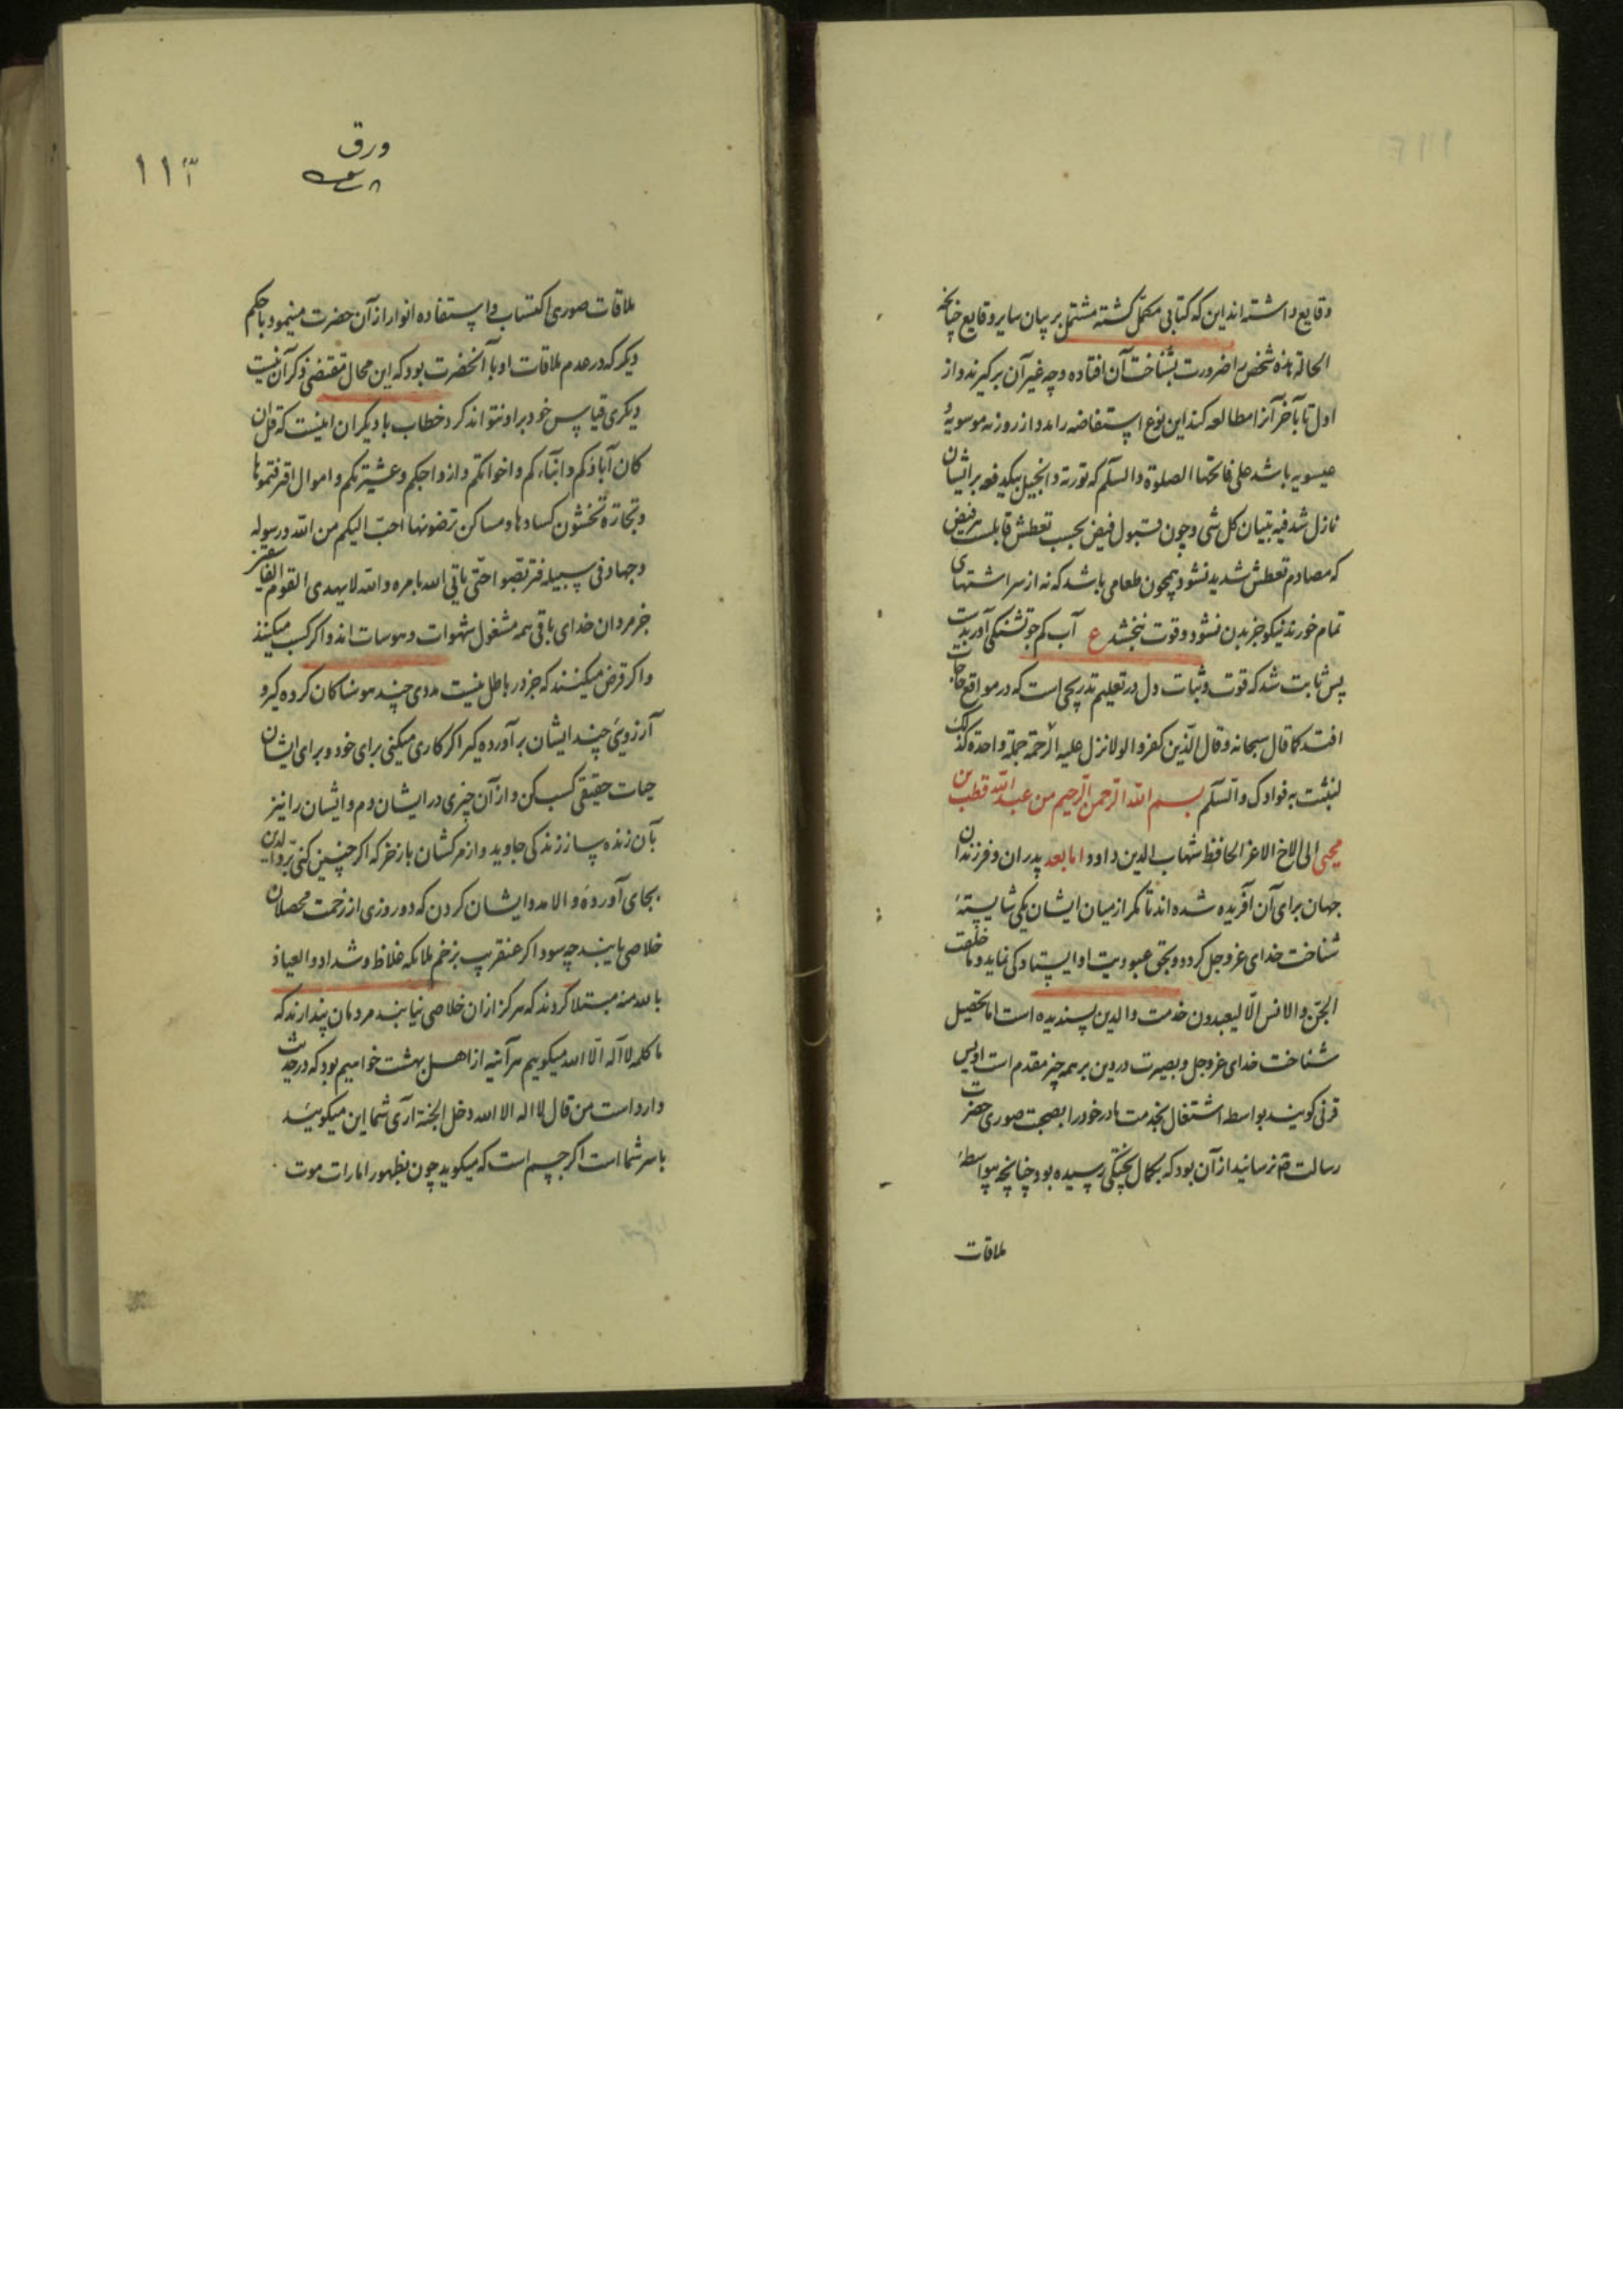 وقایع داشته اند این که کتابی مکمل کشته مشتمل بر بیان سایر وقایع چنانچه
الحالة هذه شخص را ضرورت بشناخت آن افتاده و چه غیر آن بر کیرند و از
اول تا بآخر آنرا مطالعه کند این نوع استفاضه را مد و از روزنه موسویهٔ
عیسویه باشد علی فاتحتها الصلوة والسلم که توریة و انجیل بیکدفعه بر ایشان
نازل شد فیه تبیان کل شی و چون قبول فیض بحسب تعطش قابلست هر فیض
که مصادم تعطش شدید نشود همچون طعامی باشد که نه از سر اشتهای
تمام خورند نیکو جزء بدن نشود و قوت نبخشد ع آب کم جو تشنکی آور بدست
پس ثابت شد که قوت و ثبات دل در تعلیم تدریجی است که در مواقع حاجات
افتد کما قال سبحانه و قال الذین کفروا لولا نزل علیه الرحمة جملة واحدة کذلک
لنثبت به فوادک والسلم بسم الله الرحمن الرحیم من عبد الله قطب بن
محیی الی الاخ الاعز الحافظ شهاب الدین داود اما بعد پدران و فرزندان
جهان برای آن آفریده شده اند تا مکر از میان ایشان یکی شایستهٔ
شناخت خدای عزوجل کردد و بحق عبودیت او ایستادکی نماید و ما خلقت
الجن والانس الا لیعبدون خدمت والدین پسندیده است اما تحصیل
شناخت خدای عزوجل و بصیرت در دین بر همه چیز مقدم است اویس
قرنی کویند بواسطه اشتغال بخدمت مادر خود را بصحبت صوری حضرت
رسالت نرسانید از آن بود که بکمال پختکی رسیده بود چنانچه بواسطهٔ
ملاقات
ورق
۱۱۲
ملاقات صوری اکتساب و استفاده انوار از آن حضرت مینمود با حکم
دیکر که در عدم ملاقات او با آنحضرت بود که این محال مقتضی ذکر آن نیست
دیکری قیاس خود بر او نتواند کرد خطاب با دیکران اینست که قل ان
کان آباؤکم و ابناءکم و اخوانکم و ازواجکم و عشیرتکم و اموال اقترفتموها
و تجارة تخشون کسادها و مساکن ترضونها احب الیکم من الله و رسوله
و جهاد فی سبیله فتربصوا حتی یاتی الله بامره و الله لا یهدی القوم الفاسقین
جز مردان خدای باقی همه مشغول شهوات و هوسات اند و اکر کسب میکنند
و اکر قرض میکنند که جز در باطل نیست مددی چند هوسناکان کرده کیر و
آرزوی چند ایشان بر آورده کیر اکر کاری میکنی برای خود و برای ایشان
حیات حقیقی کسب کن و از آن چیزی در ایشان دم و ایشان را نیز
بآن زنده ساز زندکی جاوید و از مرکشان باز خر که اکر چنین کنی بر والدین
بجای آوردهٔ و الا مدد ایشان کردن که دو روزی از زحمت محصلان
خلاصی یابند چه سود اکر عنقریب بزخم ملائکه غلاظ و شداد و العیاذ
بالله منه مبتلا کردند که هرکز ازان خلاصی نیابند مردمان پندارند که
ما کلمه لا اله الا الله میکوییم هر آینه از اهل بهشت خواهیم بود که در حدیث
وارد است من قال لا اله الا الله دخل الجنة آری شما این میکویید
با سر شما است اکر جسم است که میکوید چون بظهور امارات موت